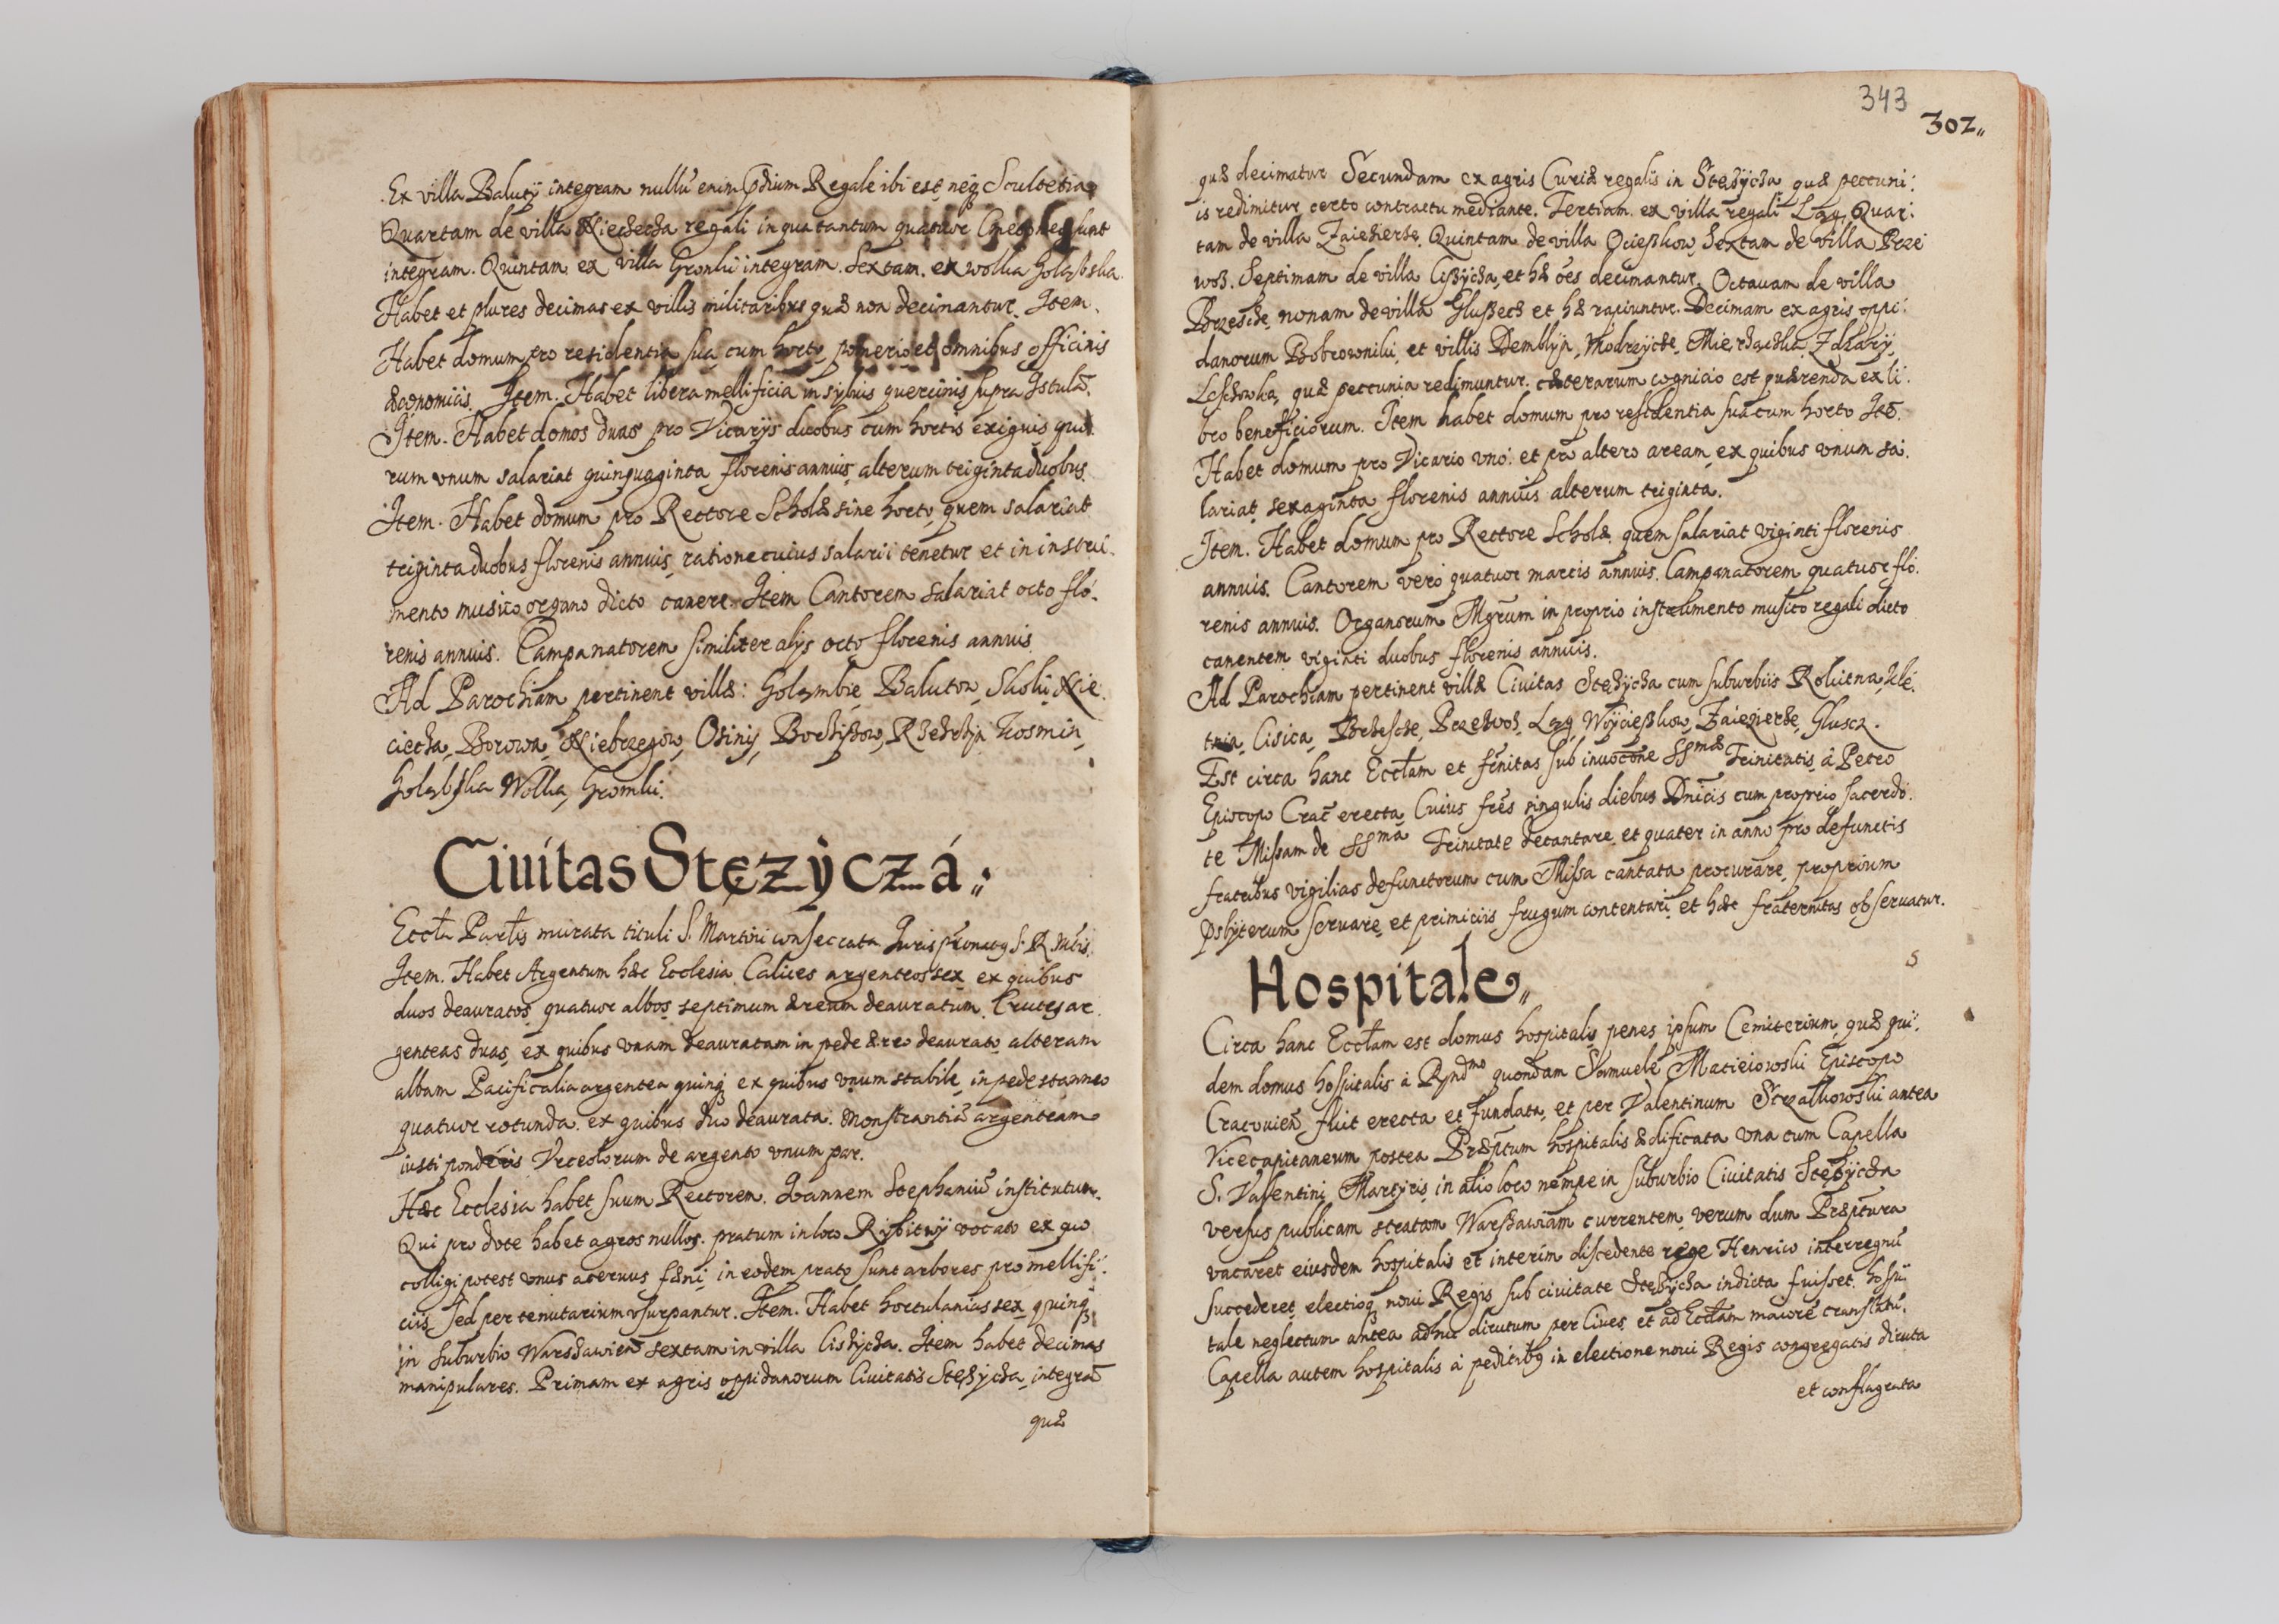 Ex villa Baluty integram nullū enim p̄dium Regale ibi est neq̨ Scultetia
Quartam de villa Niecżecża regali in qua tantum quatuor Cmetones sunt
integram. Quintam ex villa Gronki integram. Sextam ex wolka Goląbska
Habet et plures decimas ex villis militaribus quæ non decimantur. Item.
Habet domum pro residentia sua cum horto, pomerio et omnibus officinis
æconomiis. Item. Habet libera mellificia in sylvis quercinis supra Istulā.
Item. Habet domos duas pro Vicarijs duobus cum hortis exiguis quo
rum vnum salariat quinquaginta florenis annuis, alterum triginta duobus.
Item. Habet domum pro Rectore Scholæ sine horto, quem salariat
triginta duobus florenis annuis, ratione cuius salarii tenetur et in instru.
mento musico organo dicto canere. Item Cantorem salariat octo flo.
renis annuis. Campanatorem similiter alijs octo florenis annuis.
Ad Parochiam pertinent villæ: Goląmbie, Baluton, Skoki, Nie
ciecża, Borowa, Niebrzegów, Osiny, Bochiszow, Kosmin,
Goląbska Wolka, Gromki.
Ciuitas Stęzÿczá
Eccla Parlis murata tituli S. Martini consecrata Juris S. R. Mtis.
Item. Habet Argentum hæc Ecclesia. Calices argenteos sex, ex quibus
duos deauratos, quatuor albos, septimum æreum deauratum. Cruces ar.
genteas duas, ex quibus vnam deauratam in pede æreo deaurato, alteram
albam. Pacificalia argentea quinq̨ ex quibus vnum stabile, in pede stanneo
quatuor rotunda, ex quibus duo deaurata. Monstrantiā argenteam
iusti ponderis Vrceolorum de argento vnum par.
Hæc Ecclesia habet suum Rectorem. Ioannem Stephaniū institutum.
Qui pro dote habet agros nullos. pratum in loco Rybitwÿ vocato ex quo
colligi potest vnus aceruus fæni, in eodem prato sunt arbores pro mellifi.
ciis, sed per tenutarium vsurpantur. Item. Habet hortulanias sex, quinq̨
in suburbio Warszawień sextam in villa Cisżycża. Item habet decimas
manipulares. Primam ex agris oppidanorum Ciuitatis Stężycża, integrā
quæ
343
302
quæ decimatur Secundam ex agris Curiæ regalis in Stężycża, quæ peccuni:
is redimitur certo contractu mediante. Tertiam ex villa regali Ląg, Quar:
tam de villa Zaieżierże, Quintam de villa Ocieszkow, Sextam de villa Prze
woz. Septimam de villa Ciszycża, et hæ ōes decimantur. Octauam de villa
Brzescże, nonam de villa Gluszecz et hæ rapiuntur. Decimam ex agris oppi:
danorum Bobrowniki, et villis Demblyn, Modrzycże, Mierżączka, Zdżary,
Leschowka, quæ peccunia redimuntur. cæterarum cognicio est quærenda ex li:
bro beneficiorum. Item habet domum pro residentia sua cum horto Itē.
Habet domum pro Vicario vno: et pro altero aream, ex quibus vnum sa.
lariat, sexaginta florenis annuis alterum triginta.
Item. Habet domum pro Rectore Scholæ, quem salariat viginti florenis
annuis. Cantorem vero quatuor marcis annuis. Campanatorem quatuor flo.
renis annuis. Organorum Mgrum in proprio instrumento musico regali dicto
canentem viginti duobus florenis annuis.
Ad Parochiam pertinent villæ Ciuitas Stężycża cum suburbiis Rokitna, Kle.
tnia, Cisica, Brżescże, Przewoż, Ląg, Woycieszkow, Zaiezierże, Gluscz.
Est circa hanc Ecclam et frnitas sub inuocōne SSmæ Trinitatis, â Petro
Episcopo Crac̄ erecta, Cuius frēs singulis diebus Dnicis cum proprio sacerdo.
te Missam de SSma Trinitate decantare, et quater in anno pro defunctis
fratribus vigilias defunctorum cum Missa cantata procurare, proprium
p̄sbyterum seruare, et primiciis frugum contentari, et hæc fraternitas obseruatur.
Hospitale
Circa hanc Ecclam est domus hospitalis, penes ipsum Cemiterium, quæ qui:
dem domus hospitalis â Rndmo quondam Samuele Macieiowski Episcopo
Cracouien̄ fuit erecta et fundata, et per Valentinum Strzalkowski antea
Vicecapitaneum postea Præptum hospitalis ædificata vna cum Capella
S. Valentini Martyris, in alio loco nempe in suburbio Ciuitatis Stężycża
versus publicam stratam Warszawiam currentem, verum dum Præptura
vacaret eiusdem hospitalis et interim discedente rege Henrico interregnū
succederet, electioq̨ noui Regis sub ciuitate Stężycża indicta fuisset, hospi:
tale neglectum antea adhuc dirutum per Ciues, et ad Ecclam maiorē translatū.
Capella autem hospitalis â peditibq̨ in electione noui Regis congregatis diruta
et conflagrata